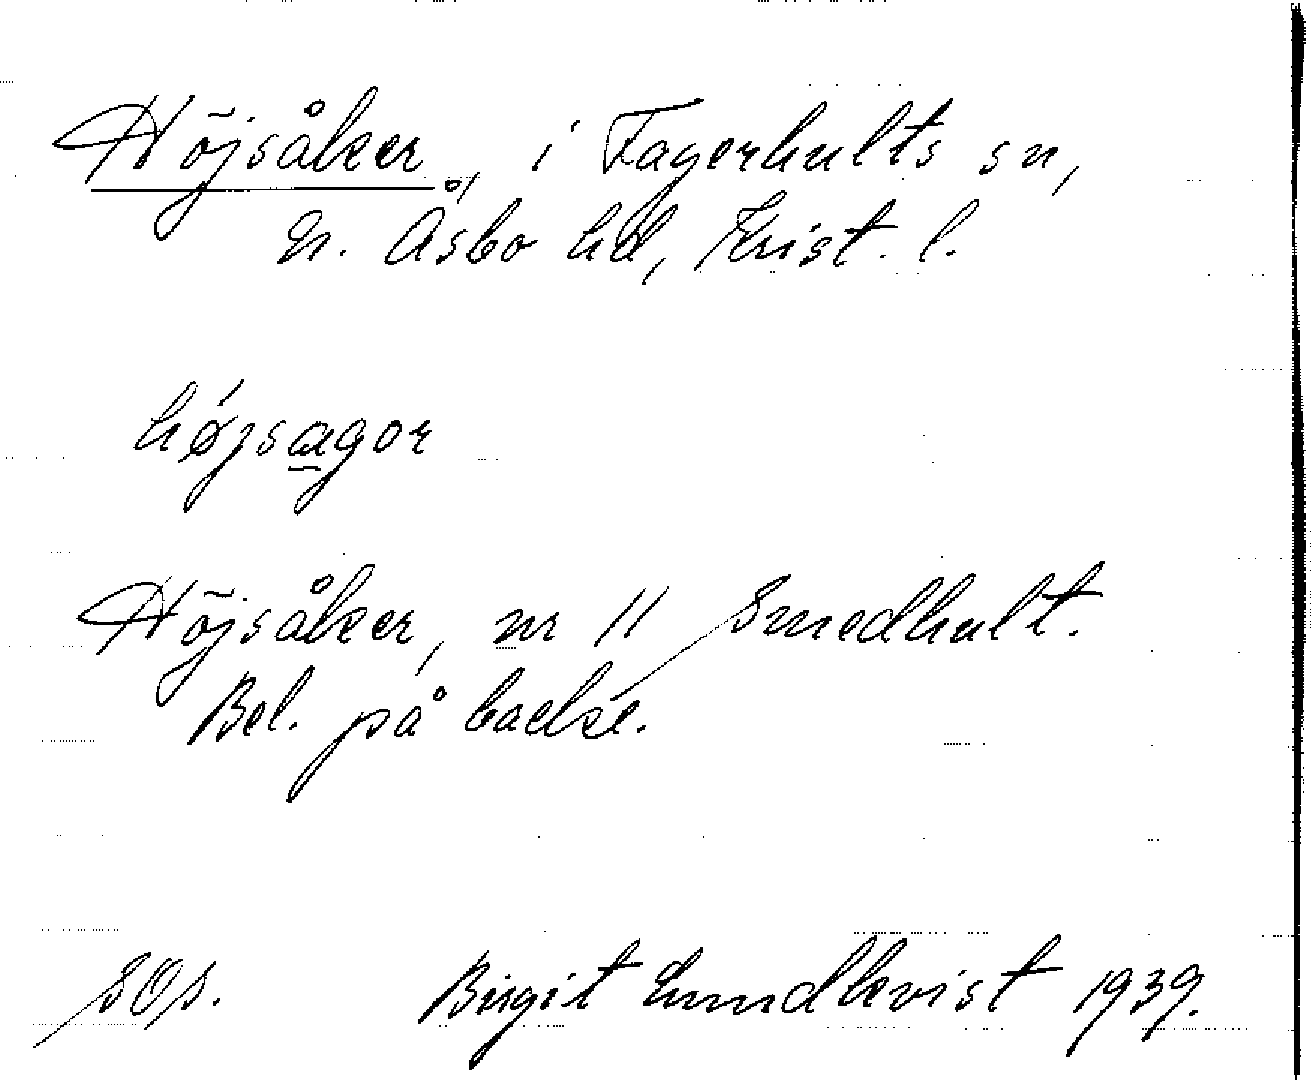 Höjsåker, i Fagerhults sn,
N. Åsbo hd, Krist. l.
højsagor
Höjsåker, nr 11 Smedhult.
Bel. på backe.
Birgit Lundkvist 1939.